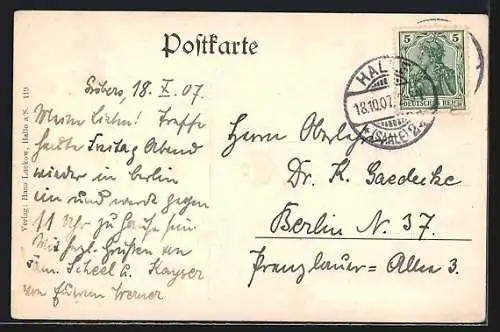 Postkarte
Gröbers, 18. X. 07.
Meine Lieben! Treffe
heute Freitag Abend
wieder in Berlin
ein und werde gegen
11 Uhr zu Hause sein
Mit herzl. Grüßen an
Fam. Scheel u. Kayser
von Eurem Werner
Verlag: Hans Luckow, Halle a/S. 119
5 5
DEUTSCHES REICH
HALLE
18.10.07.
* (SAALE) 2
Herrn Oberlehrer
Dr. K. Gaedecke
Berlin N. 37.
Prenzlauer = Allee 3.